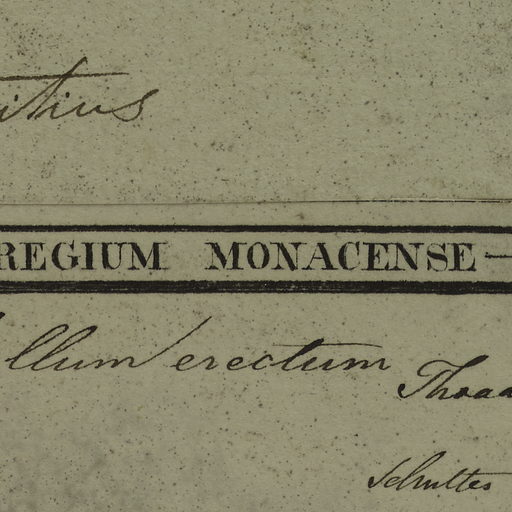 itius
REGIUM MONACENSE —
llum erectum Thoaa
Schultes